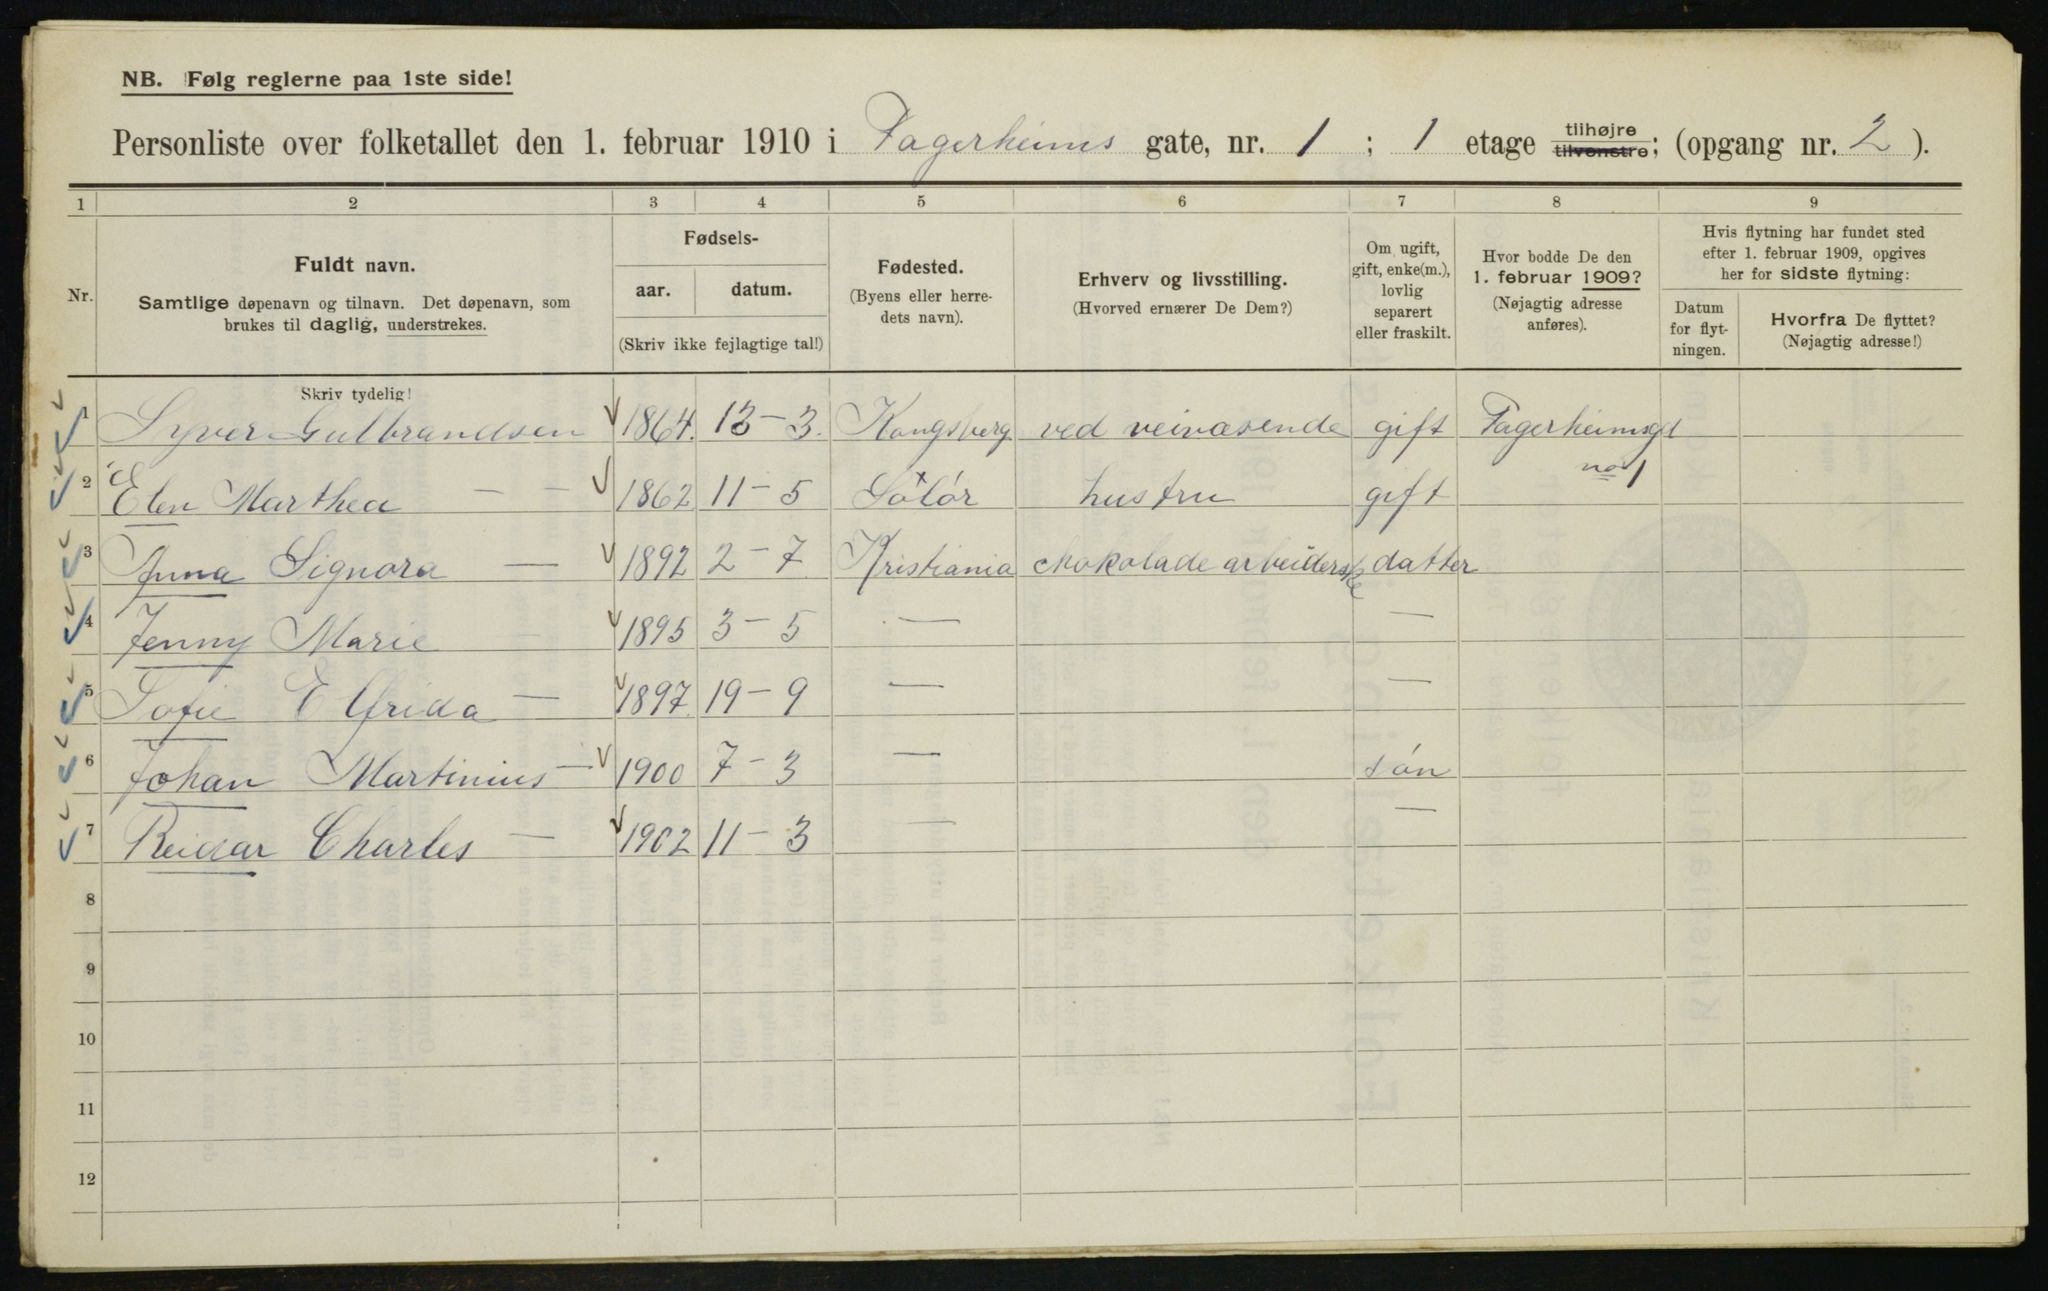 NB. Følg reglerne paa 1ste side!
Personliste over folketallet den 1. februar 1910 i Fagerheims gate, nr. 1 ; 1 etage tilhøjre tilvenstre; (opgang nr. 2 ).
1 2 3 4 5 6 7 8 9
Nr.
Fuldt navn.
Samtlige døpenavn og tilnavn. Det døpenavn, som
brukes til daglig, understrekes.
Fødsels-
aar. datum.
(Skriv ikke fejlagtige tal!)
Fødested.
(Byens eller herre-
dets navn).
Erhverv og livsstilling.
(Hvorved ernærer De Dem?)
Om ugift,
gift, enke(m.),
lovlig
separert
eller fraskilt.
Hvor bodde De den
1. februar 1909?
(Nøjagtig adresse
anføres).
Hvis flytning har fundet sted
efter 1. februar 1909, opgives
her for sidste flytning:
Datum
for flyt-
ningen.
Hvorfra De flyttet?
(Nøjagtig adresse!)
Skriv tydelig!
1 Syver Gulbrandsen 1864. 13 – 3. Kongsberg ved veivæsende gift Fagerheimsgt
no 1
2 Elen Marthea — — 1862 11 – 5 Sölör hustru gift
3 Anna Signora — 1892 2 – 7 Kristiania chokolade arbeiderske datter
4 Jenny Marie 1895 3 – 5 — —
5 Sofie Elfrida — 1897 19 – 9 — —
6 Johan Martinius — 1900 7 – 3 — són
7 Reidar Charles — 1902 11 – 3 — —
8
9
10
11
12